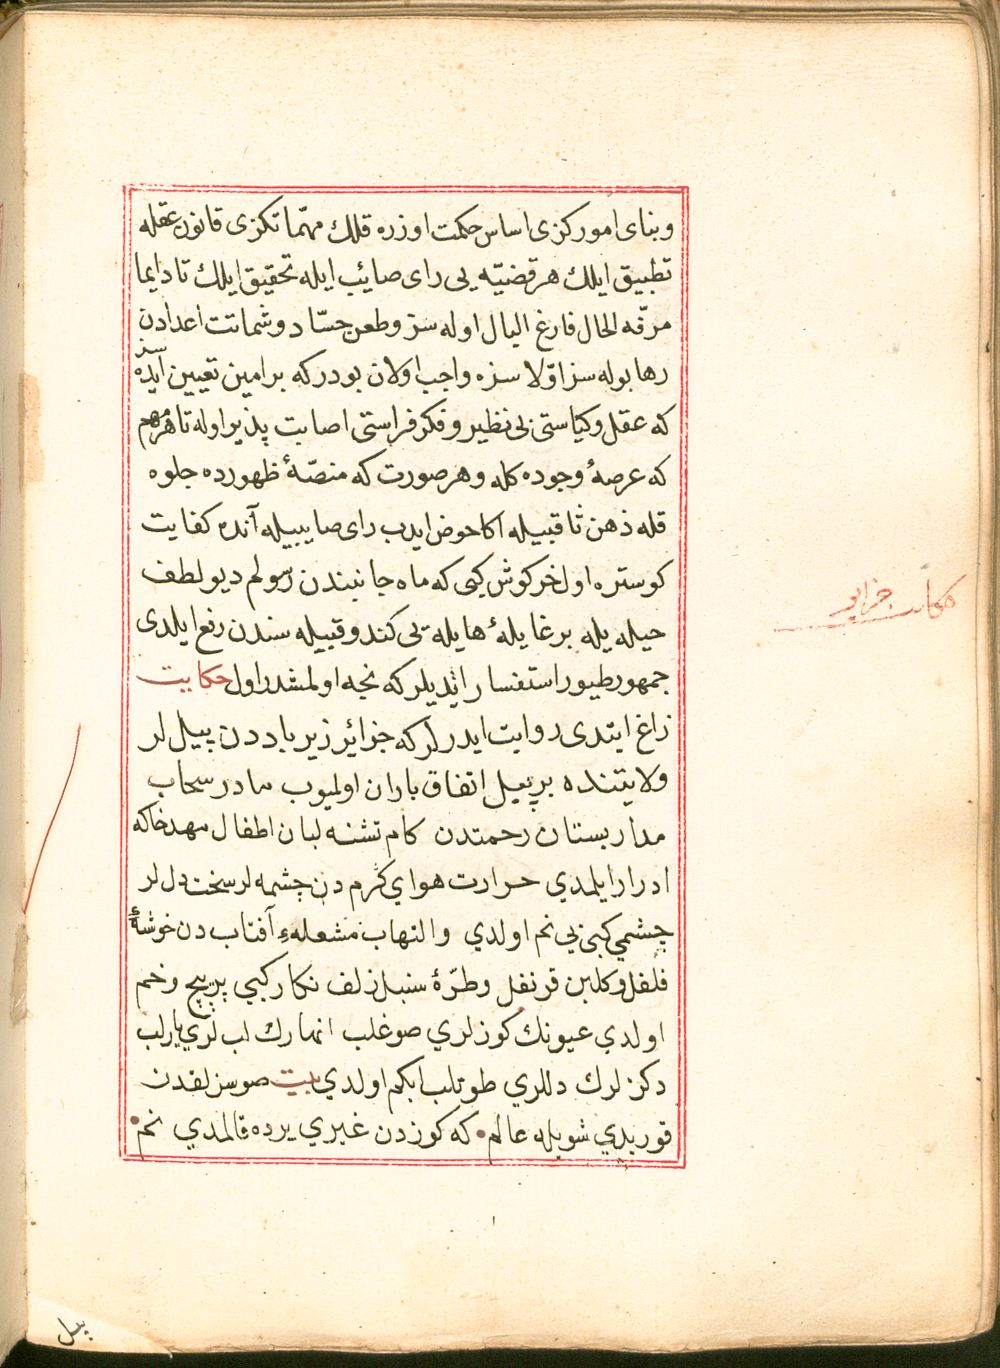 وبنای امورکزی اساس حکمت اوزره قلك مهمّاتکزی قانون عقله
تطبیق ایلك هر قضیّه یی رای صائب ایله تحقیق ایلك تا دایما
مرفّه الحال فارغ البال اوله سز وطعن حسّاد وشماتت اعدادن
رها بوله سز اوّلا سزه واجب اولان بودرکه بر امین تعیین ایده سز
که عقل وکیاستی بی نظیر وفکر فراستی اصابت پذیر اوله تا هر مهم
که عرصهٔ وجوده کله وهر صورت که منصّهٔ ظهورده جلوه
قله ذهن ثاقبیله اکا حوض ایدب رای صایبیله آنده کفایت
کوستره اول خرکوش کبی که ماه جانبندن رسولم دیو لطف
حیله یله بر غایلهٔ هایله یی کندو قبیله سندن رفع ایلدی
جمهور طیور استفسار ایتدیلر که نجه اولمشدر اول حکایت
زاغ ایتدی روایت ایدرلر که جزائر زیرباددن پیل لر
ولایتنده بر ییل اتفاق باران اولمیوب مادر سحاب
مدار بستان رحمتدن کام تشنه لبان اطفال مهد خاکه
ادرار ایلمدی حرارت هوای کرم دن چشمه لر سخت دل لر
چشمی کبی بی نم اولدی والتهاب مشعلهء آفتاب دن خوشهٔ
فلفل وکلبن قرنفل وطرّهٔ سنبل زلف نکار کبی پرپیچ وخم
اولدی عیونك کوزلری صوغلب انهارك لب لری یارلب
دکزلرك دللری طوتلب ابکم اولدی بیت صوسزلقدن
قوریدی شویله عالم • که کوزدن غیری یرده قالمدی نم •
حکایت جزایر
ییل